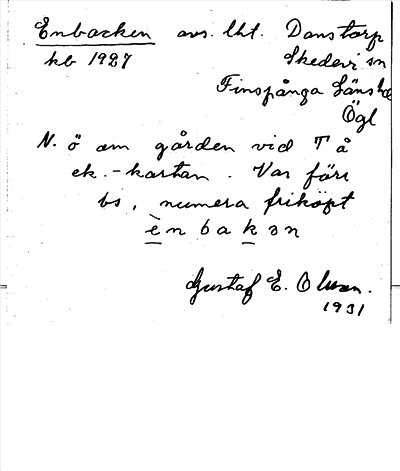 Enbacken avs. lht. Danstorp
kb 1927 Skedevi sn
Finspånga Länshd
Ögl
N. ö om gården vid T å
ek. -kartan. Var förr
bs, numera friköpt
ènbakən
Gustaf E. Olsson.
1931